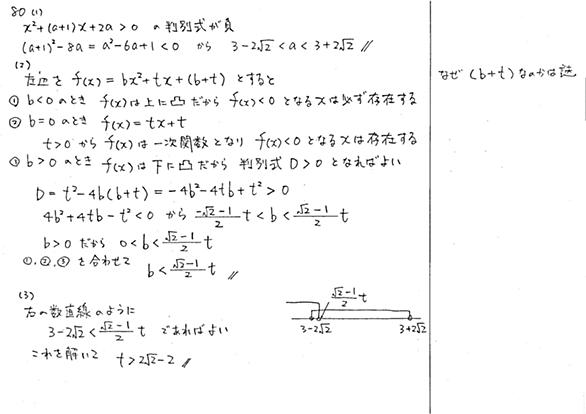 80 (1)
x²+(a+1)x+2a>0 の判別式が負
(a+1)²-8a=a²-6a+1<0 から 3-2√2<a<3+2√2 //
(2)
左辺を f(x)=bx²+tx+(b+t) とすると
① b<0のとき f(x)は上に凸だから f(x)<0となるxは必ず存在する
② b=0のとき f(x)=tx+t
t>0から f(x)は一次関数となり f(x)<0となるxは存在する
③ b>0のとき f(x)は下に凸だから 判別式D>0となればよい
D=t²-4b(b+t)=-4b²-4tb+t²>0
4b²+4tb-t²<0 から (-√2-1)/2 t<b<(√2-1)/2 t
b>0だから 0<b<(√2-1)/2 t
①,②,③を合わせて b<(√2-1)/2 t //
(3)
右の数直線のように
3-2√2<(√2-1)/2 t であればよい
これを解いて t>2√2-2 //
(√2-1)/2 t
3-2√2
3+2√2
なぜ(b+t)なのかは謎